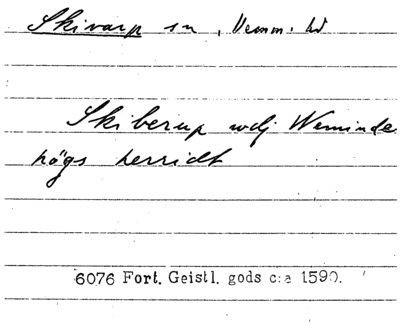 Skivarp sn , Vemm. hd
Skiberup wdj Weminde
högs herridt
6076 Fort. Geistl. gods c:a 1590.